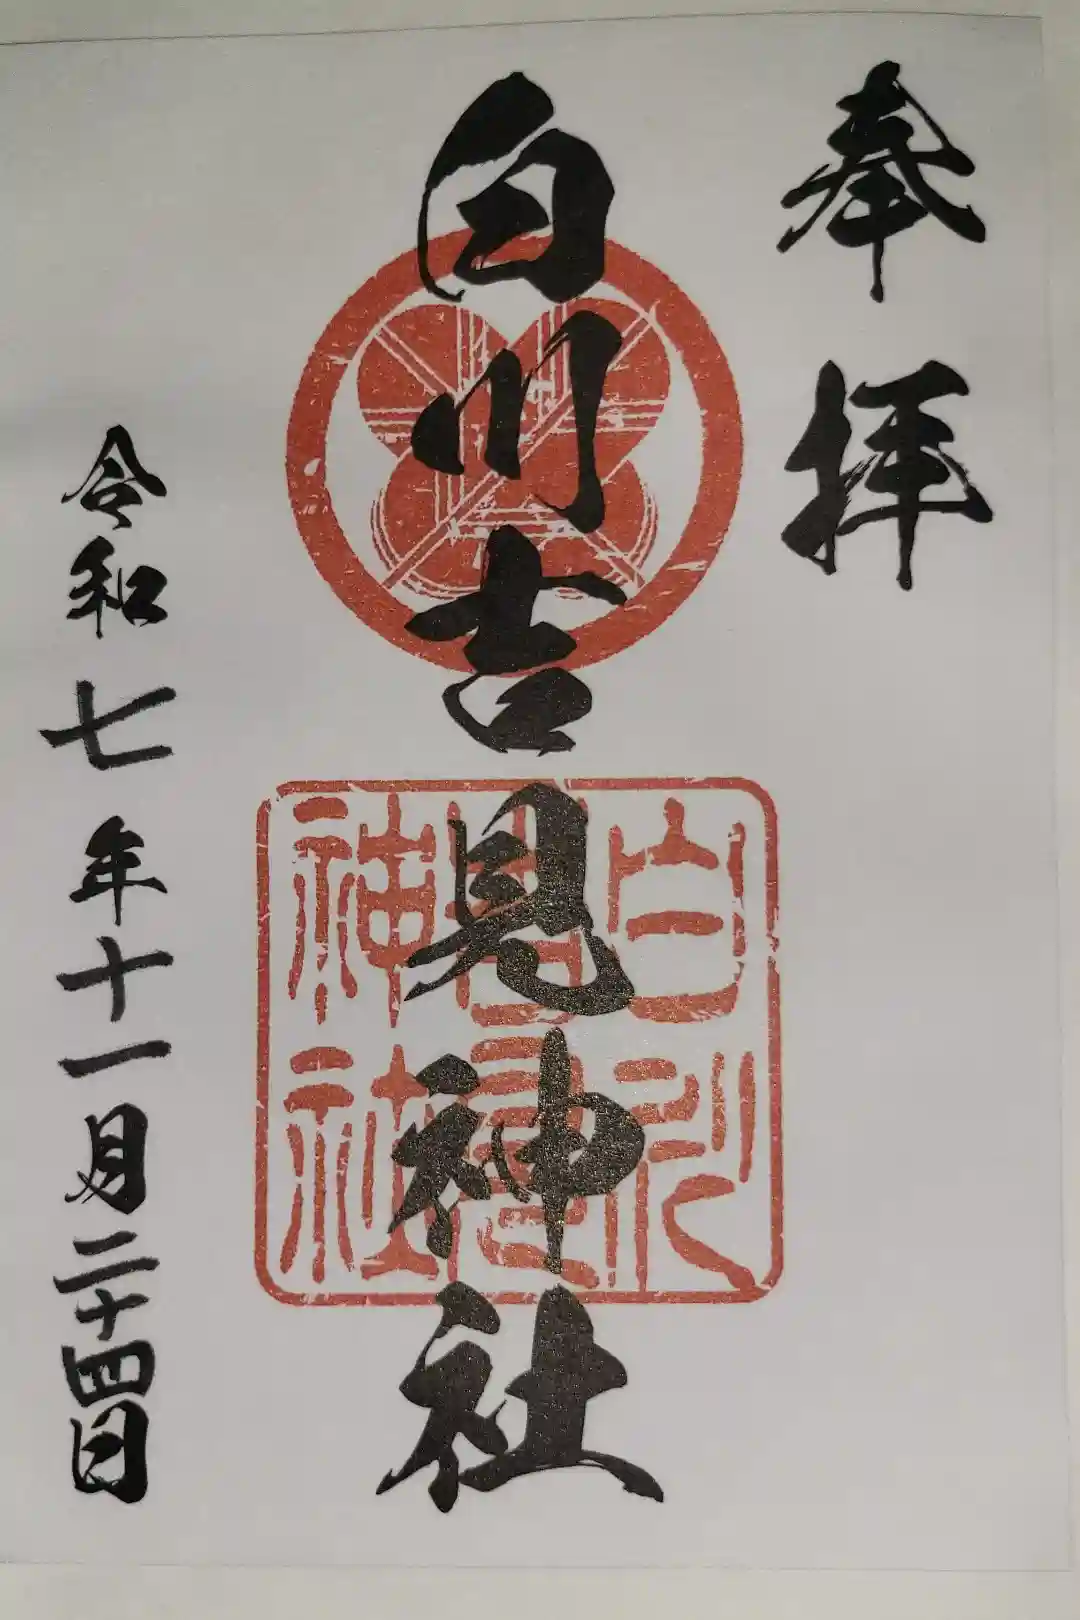 奉拝
白川吉見神社
白川
吉見
神社
令和七年十一月二十四日